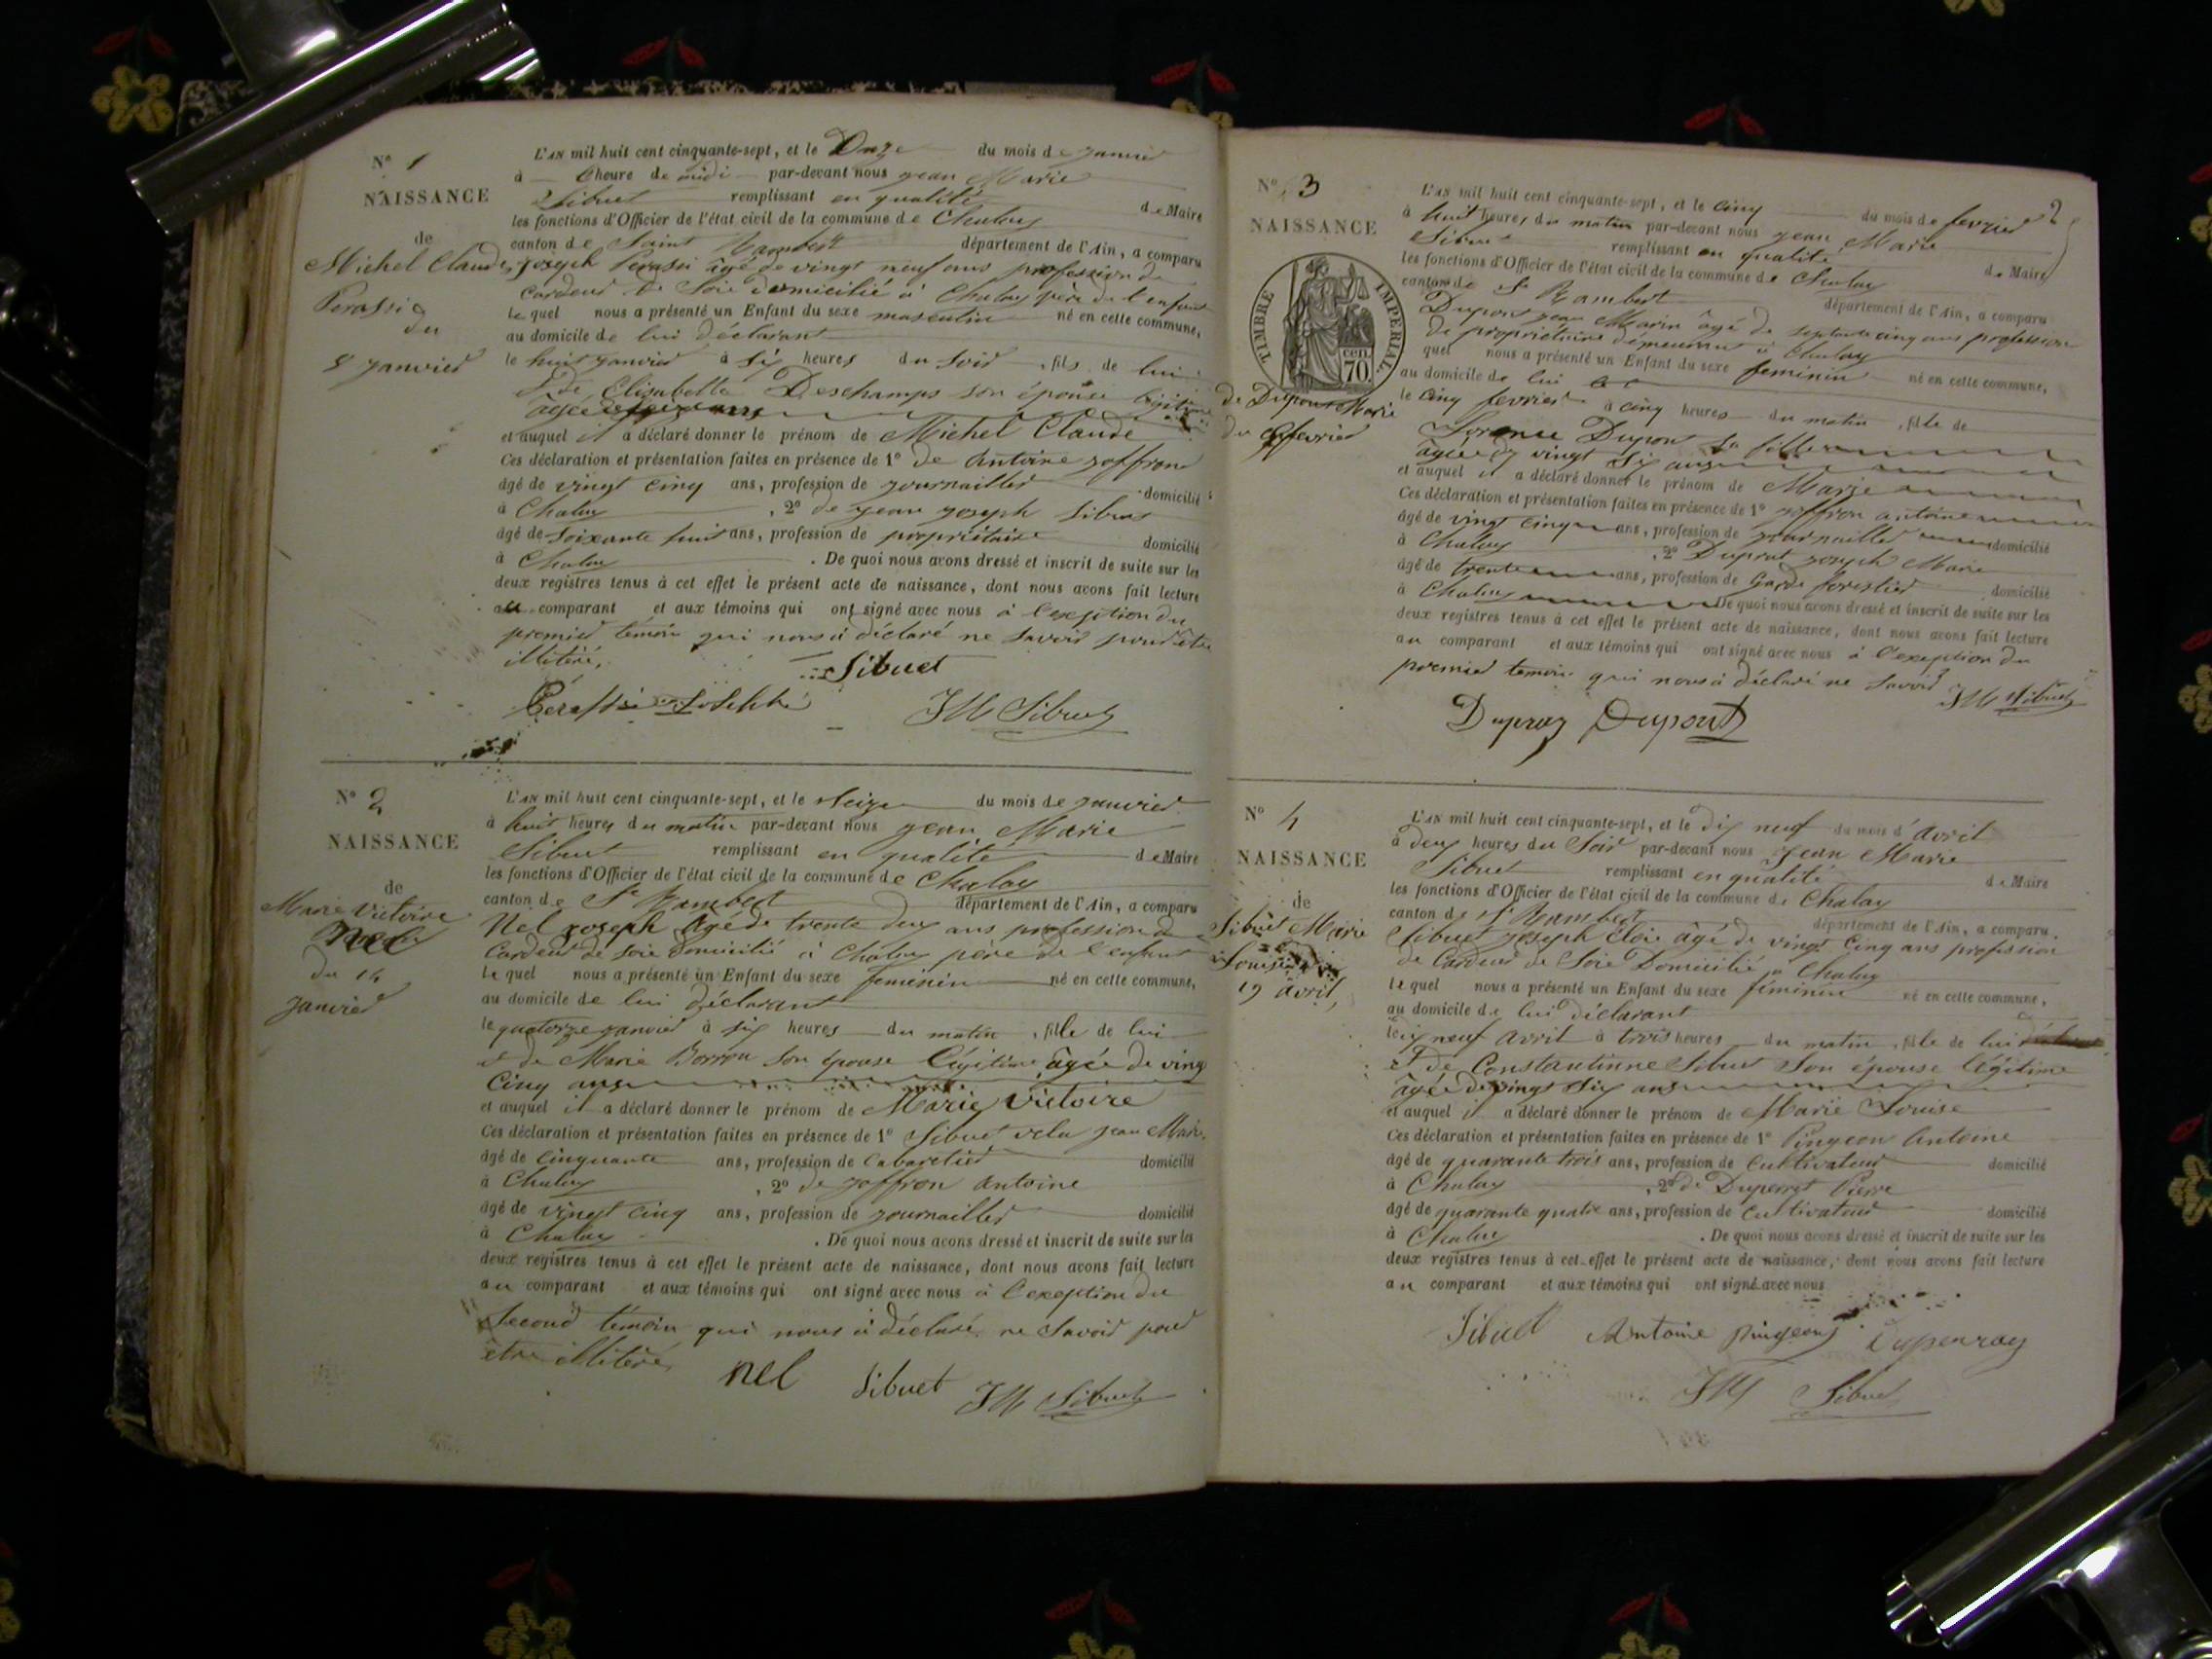 N° 1
NAISSANCE
de
Michel Claude
Perassi
du
8 janvier
L'AN mil huit cent cinquante-sept, et le Onze du mois de janvier
à heure de midi par-devant nous jean Marie
Sibuet remplissant en qualité de Maire
les fonctions d'Officier de l'état civil de la commune de Chaley
canton de Saint Rambert département de l'Ain, a comparu
joseph Perassi âgé de vingt neuf ans profession de
Cardeur de Soie domicilié à Chaley père de l'enfant
Lequel nous a présenté un Enfant du sexe masculin né en cette commune,
au domicile de lui déclarant
le huit janvier à six heures du soir, fils de lui
et de Elisabette Deschamps son épouse légitime
âgée
et auquel il a déclaré donner le prénom de Michel Claude
Ces déclaration et présentation faites en présence de 1° de Antoine joffron
âgé de vingt cinq ans, profession de journailler domicilié
à Chaley, 2° de jean joseph Sibuet
âgé de soixante huit ans, profession de propriétaire domicilié
à Chaley. De quoi nous avons dressé et inscrit de suite sur les
deux registres tenus à cet effet le présent acte de naissance, dont nous avons fait lecture
au comparant et aux témoins qui ont signé avec nous à l'exeption du
premier témoin qui nous à déclaré ne savoir pour être
illitéré,
Sibuet
JM Sibuet
N° 2
NAISSANCE
de
Marie Victoire
Nel
du 14
janvier
L'AN mil huit cent cinquante-sept, et le Seize du mois de janvier
à huit heures du matin par-devant nous jean Marie
Sibuet remplissant en qualité de Maire
les fonctions d'Officier de l'état civil de la commune de Chaley
canton de St Rambert département de l'Ain, a comparu
Nel joseph âgé de trente deux ans profession de
Cardeur de soie domicilié à Chaley père de l'enfant
Lequel nous a présenté un Enfant du sexe feminin né en cette commune,
au domicile de lui déclarant
le quatorze janvier à six heures du matin, fille de lui
et de Marie Borron son épouse légitime âgée de vingt
Cinq ans
et auquel il a déclaré donner le prénom de Marie Victoire
Ces déclaration et présentation faites en présence de 1° Sibuet jean Marie,
âgé de cinquante ans, profession de Cabaretier domicilié
à Chaley, 2° de joffron Antoine
âgé de vingt cinq ans, profession de journailler domicilié
à Chaley. De quoi nous avons dressé et inscrit de suite sur les
deux registres tenus à cet effet le présent acte de naissance, dont nous avons fait lecture
au comparant et aux témoins qui ont signé avec nous à l'exeption du
second témoin qui nous à déclaré ne savoir pour
etre illitéré,
nel Sibuet JM Sibuet
2
N° 3
NAISSANCE
TIMBRE IMPERIAL
70 cen
de Dupont Marie
du 5 fevrier
L'AN mil huit cent cinquante-sept, et le cinq du mois de fevrier
à huit heures du matin par-devant nous jean Marie
Sibuet remplissant en qualité de Maire
les fonctions d'Officier de l'état civil de la commune de Chaley
canton de St Rambert département de l'Ain, a comparu
Dupont jean Marin âgé de septante cinq ans profession
de propriétaire demeurant à Chaley
quel nous a présenté un Enfant du sexe feminin né en cette commune,
au domicile de lui
le cinq fevrier à cinq heures du matin, fille de
Dupont sa fille
âgée de vingt six ans
et auquel il a déclaré donner le prénom de Marie
Ces déclaration et présentation faites en présence de 1° joffron antoine
âgé de vingt cinq ans, profession de journailler domicilié
à Chaley, 2° Duprat joseph Marie
âgé de trente ans, profession de Garde forestier domicilié
à Chaley De quoi nous avons dressé et inscrit de suite sur les
deux registres tenus à cet effet le présent acte de naissance, dont nous avons fait lecture
au comparant et aux témoins qui ont signé avec nous à l'exeption du
premier temoin qui nous à déclaré ne savoir
JM Sibuet
Dupraz Dupont
N° 4
NAISSANCE
de
Sibuet Marie
Louise
19 avril,
L'AN mil huit cent cinquante-sept, et le dix neuf du mois d'avril
à deux heures du Soir par-devant nous Jean Marie
Sibuet remplissant en qualité de Maire
les fonctions d'Officier de l'état civil de la commune de Chaley
canton de St Rambert département de l'Ain, a comparu
Sibuet joseph Eloie âgé de vingt cinq ans profession
de Cardeur de Soie Domicilié à Chaley
Lequel nous a présenté un Enfant du sexe féminin né en cette commune,
au domicile de lui déclarant
le dix neuf avril à trois heures du matin, fille de lui
et de Constantinne Sibuet Son épouse légitime
âgée de vingt six ans
et auquel il a déclaré donner le prénom de Marie Louise
Ces déclaration et présentation faites en présence de 1° Pingeon Antoine
âgé de quarante trois ans, profession de Cultivateur domicilié
à Chaley, 2° de Duperret Pierre
âgé de quarante quatre ans, profession de Cultivateur domicilié
à Chaley. De quoi nous avons dressé et inscrit de suite sur les
deux registres tenus à cet effet le présent acte de naissance, dont nous avons fait lecture
au comparant et aux témoins qui ont signé avec nous
Sibuet Antoine pingeon Duperray
JM Sibuet